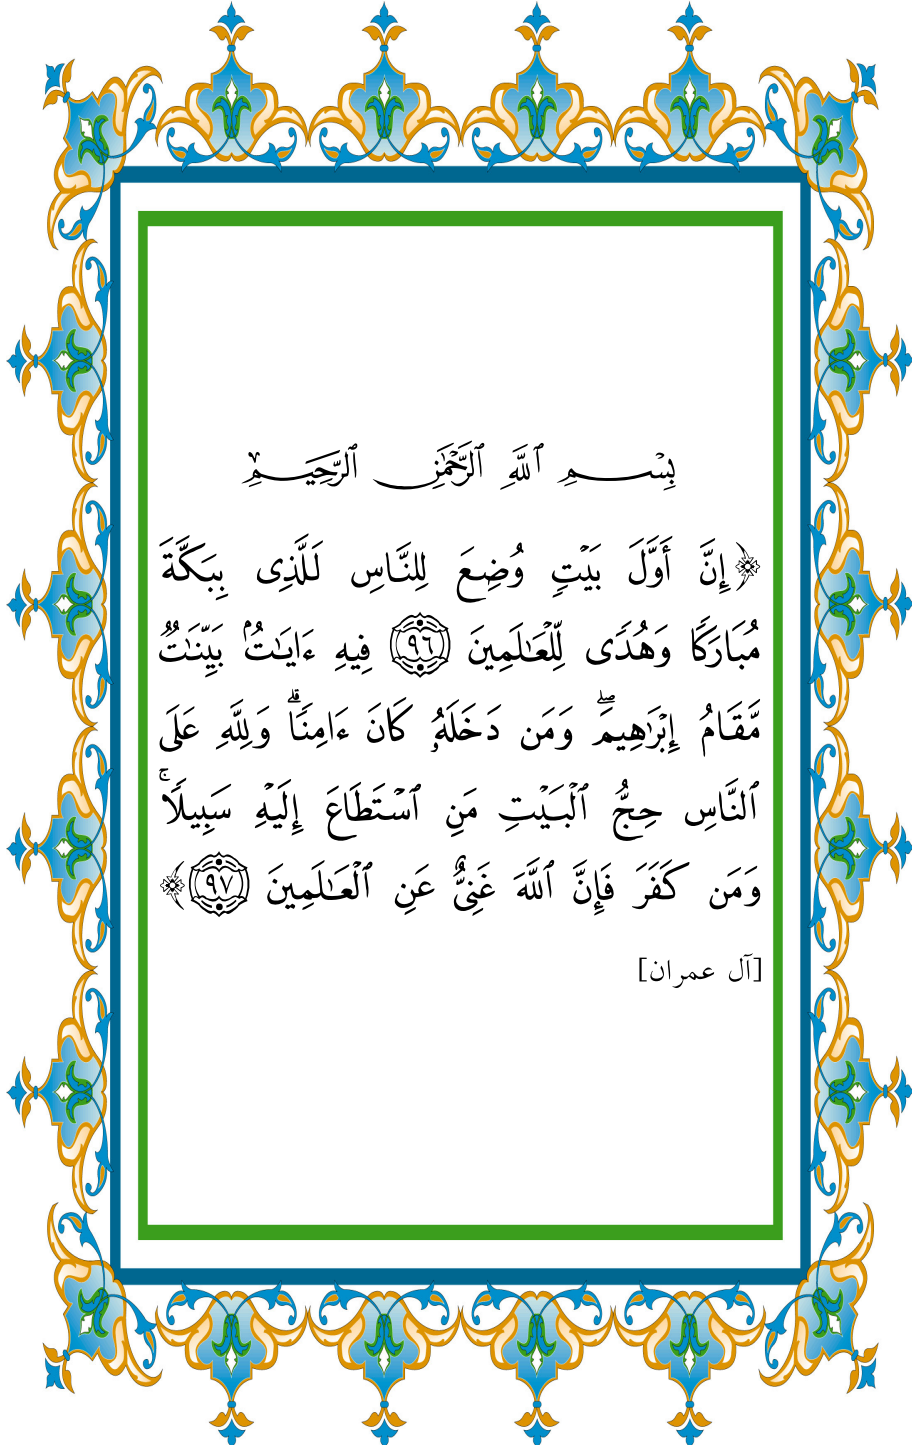 بِسْمِ ٱللَّهِ ٱلرَّحْمَٰنِ ٱلرَّحِيمِ
﴿إِنَّ أَوَّلَ بَيْتٖ وُضِعَ لِلنَّاسِ لَلَّذِى بِبَكَّةَ
مُبَارَكٗا وَهُدٗى لِّلْعَـٰلَمِينَ ٩٦ فِيهِ ءَايَـٰتُۢ بَيِّنَـٰتٞ
مَّقَامُ إِبْرَٰهِيمَۖ وَمَن دَخَلَهُۥ كَانَ ءَامِنٗاۗ وَلِلَّهِ عَلَى
ٱلنَّاسِ حِجُّ ٱلْبَيْتِ مَنِ ٱسْتَطَاعَ إِلَيْهِ سَبِيلٗاۚ
وَمَن كَفَرَ فَإِنَّ ٱللَّهَ غَنِىٌّ عَنِ ٱلْعَـٰلَمِينَ ٩٧﴾
[آل عمران]